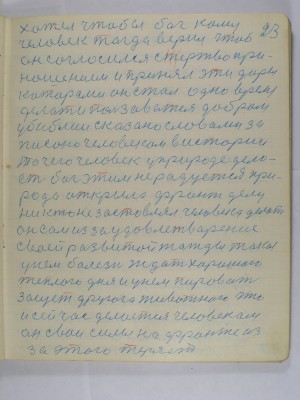 хотел чтобы бог кому 23
человек тагда верил чтоб
он согласился с жертвопри-
ношением и принял эти дары
каторами он стал одно время
делат и пользоватся добром
у библии сказано словами за
писоно человеком в истории
то чего человек у природе дело-
ет бог этим не радуется при-
рода открыла фронт делу
никто не заставлял человека делат
он сам из за удовлетварения
своей развитой жажды такая
у нем балезн ждат харошого
теплого дня и у нем пироват
защет другога животного это
и сейчас делается человеком
он свои силы на фронте из
за этого теряет